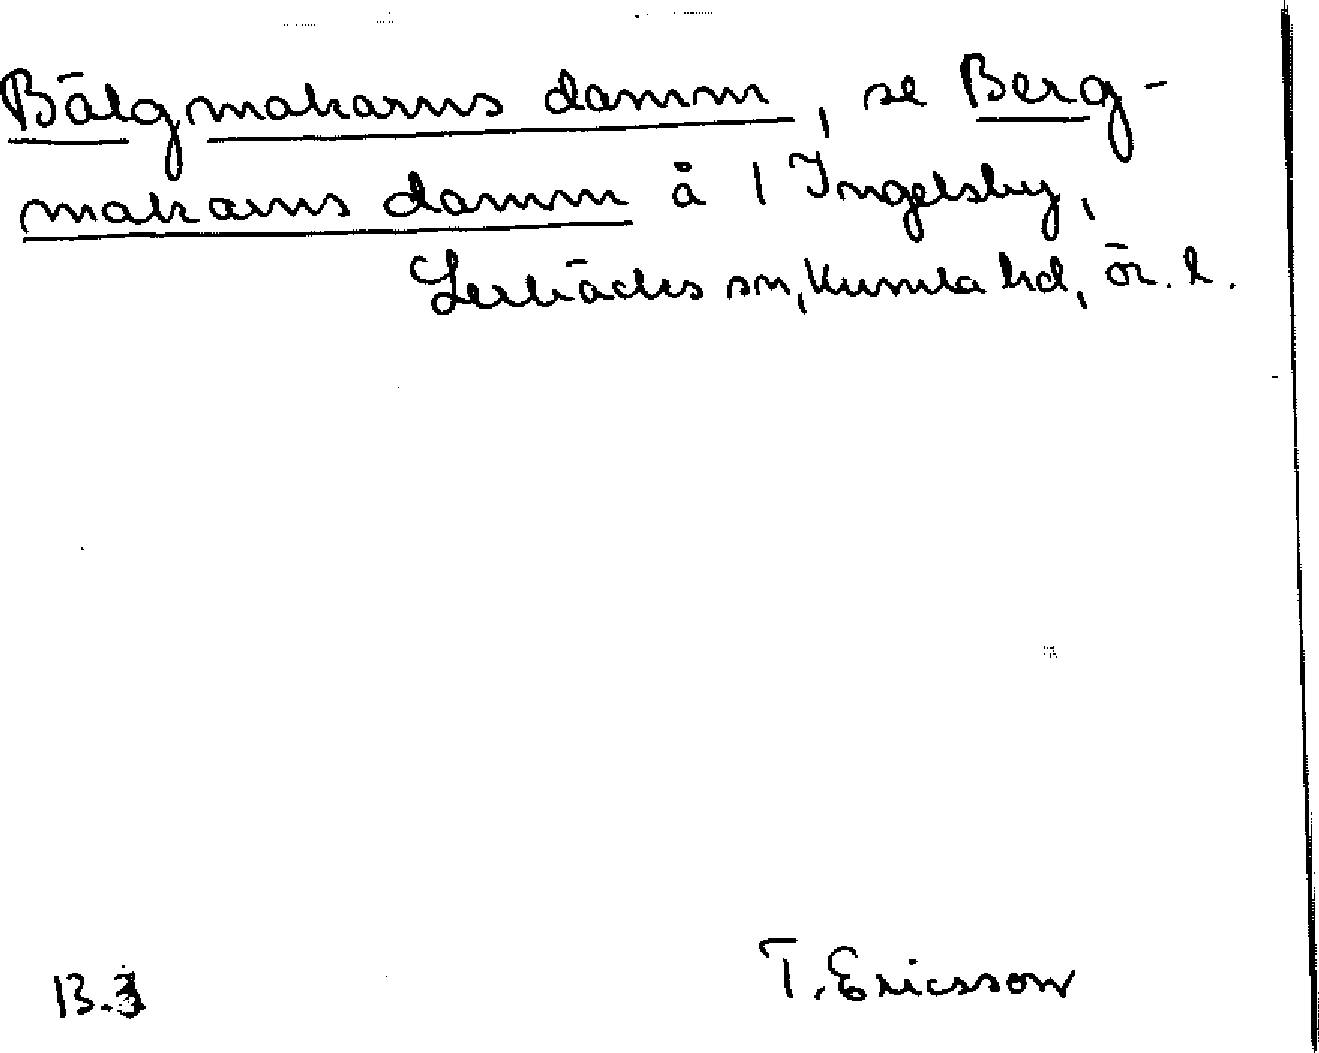 Bälgmakarns damm, se Berg-
makarns damm å 1 Ingelsby,
Lerbäcks sn, Kumla hd, Ör. l.
T. Ericsson